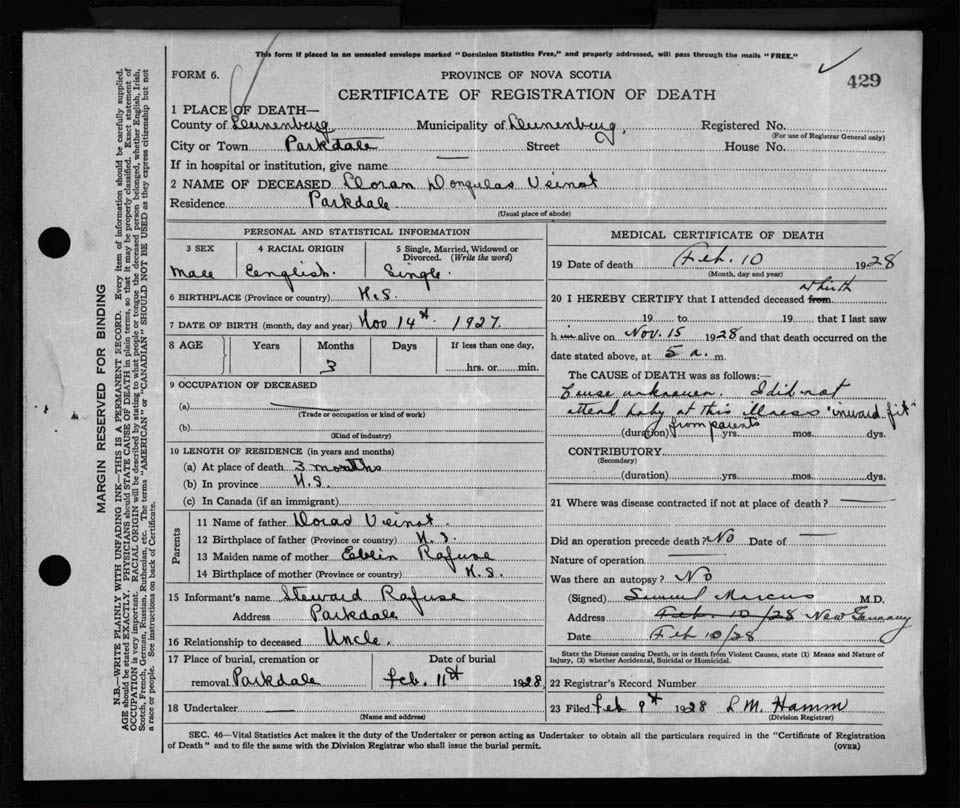 This form if placed in an unsealed envelope marked "Dominion Statistics Free," and properly addressed, will pass through the mails "FREE."
429
FORM 6.
PROVINCE OF NOVA SCOTIA
CERTIFICATE OF REGISTRATION OF DEATH
1 PLACE OF DEATH—
County of Lunenburg Municipality of Lunenburg, Registered No.
(For use of Registrar General only)
City or Town Parkdale Street House No.
If in hospital or institution, give name
2 NAME OF DECEASED Veinot
Residence Parkdale
(Usual place of abode)
PERSONAL AND STATISTICAL INFORMATION
3 SEX 4 RACIAL ORIGIN 5 Single, Married, Widowed or Divorced. (Write the word)
Male English. Single.
6 BIRTHPLACE (Province or country) N.S.
7 DATE OF BIRTH (month, day and year) Nov 14th 1927
8 AGE Years Months Days If less than one day,
3 hrs. or min.
9 OCCUPATION OF DECEASED
(a)
(Trade or occupation or kind of work)
(b)
(Kind of industry)
10 LENGTH OF RESIDENCE (in years and months)
(a) At place of death 3 months
(b) In province N.S.
(c) In Canada (if an immigrant)
Parents
11 Name of father Veinot.
12 Birthplace of father (Province or country) N.S.
13 Maiden name of mother Rafuse
14 Birthplace of mother (Province or country) N.S.
15 Informant's name Steward Rafuse
Address Parkdale
16 Relationship to deceased Uncle.
17 Place of burial, cremation or Date of burial
removal Parkdale Feb. 11th 1928
18 Undertaker
(Name and address)
MEDICAL CERTIFICATE OF DEATH
19 Date of death Feb. 10 1928
(Month, day and year)
at birth
20 I HEREBY CERTIFY that I attended deceased from
19 to 19 that I last saw
h im alive on Nov. 15 1928 and that death occurred on the
date stated above, at 5 a. m.
The CAUSE of DEATH was as follows:—
Cause unknown. I did not
attend baby at this illness "inward fit"
from parents
(duration) yrs. mos. dys.
CONTRIBUTORY
(Secondary)
(duration) yrs. mos. dys.
21 Where was disease contracted if not at place of death?
Did an operation precede death? No Date of
Nature of operation
Was there an autopsy? No
(Signed) Marcus M.D.
Address Feb 10/28 New Germany
Date Feb 10/28
State the Disease causing Death, or in death from Violent Causes, state (1) Means and Nature of
Injury, (2) whether Accidental, Suicidal or Homicidal.
22 Registrar's Record Number
23 Filed Feb 9th 1928 L M. Hamm
(Division Registrar)
SEC. 46—Vital Statistics Act makes it the duty of the Undertaker or person acting as Undertaker to obtain all the particulars required in the "Certificate of Registration
of Death" and to file the same with the Division Registrar who shall issue the burial permit.
(OVER)
MARGIN RESERVED FOR BINDING
N.B.—WRITE PLAINLY WITH UNFADING INK—THIS IS A PERMANENT RECORD. Every item of information should be carefully supplied.
AGE should be stated EXACTLY. PHYSICIANS should STATE CAUSE OF DEATH in plain terms, so that it may be properly classified. Exact statement of
OCCUPATION is very important. RACIAL ORIGIN will be described by stating to what people or tongue the deceased person belonged, whether English, Irish,
Scotch, French, German, Russian, Ruthenian, etc. The terms "AMERICAN" or "CANADIAN" SHOULD NOT BE USED as they express citizenship but not
a race or people. See instructions on back of Certificate.